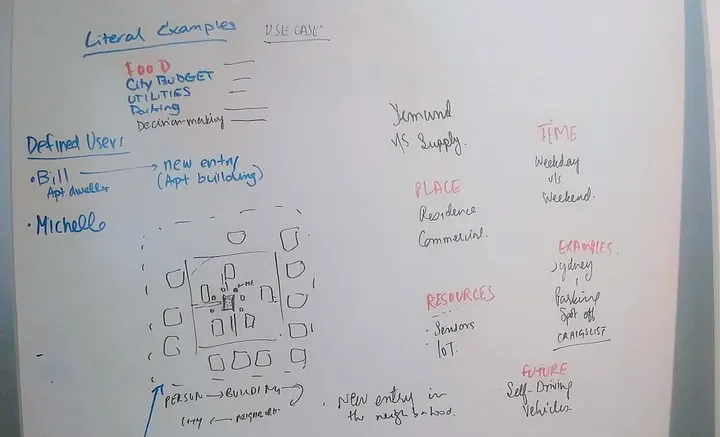 Literal Examples
USE CASE
FOOD
City BUDGET
UTILITIES
Parking
Decision-making
Defined Users
• Bill → new entry
Apt dweller
(Apt building)
• Michelle
ME
PERSON → BUILDING
CITY ←
• New entry in
the neighborhood.
Demand
V/S Supply.
PLACE
Residence
Commercial.
RESOURCES
• Sensors
• IoT.
TIME
Weekday
v/s
Weekend.
EXAMPLES.
Sydney
Parking
Spot off
CRAIGSLIST
FUTURE
Self-Driving
Vehicles